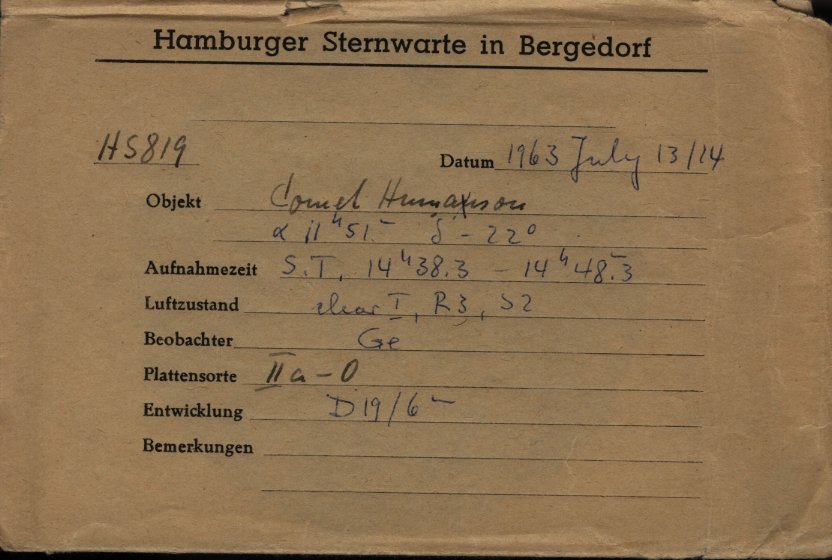 Hamburger Sternwarte in Bergedorf
HS819
Datum 1963 July 13/14
Objekt Comet Humason
α 11ʰ51ᵐ δ -22°
Aufnahmezeit S.T. 14ʰ38.3 - 14ʰ48.3
Luftzustand clear I, R3, S2
Beobachter Ge
Plattensorte IIa-O
Entwicklung D19/6ᵐ
Bemerkungen